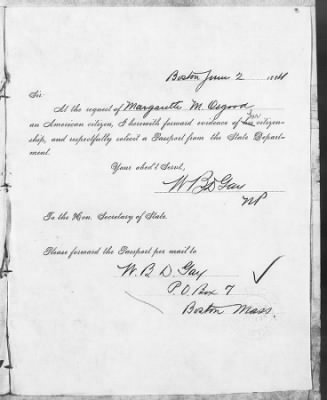 Boston June 2
Sir
At the request of Margarette M. Osgood
an American citizen, I herewith forward evidence of her citizen-
ship, and respectfully solicit a Passport from the State Depart-
ment.
Your obed't Servt,
W B D Gay
NP
To the Hon. Secretary of State.
Please forward the Passport per mail to
W. B. D. Gay
P.O. Box 7
Boston Mass.